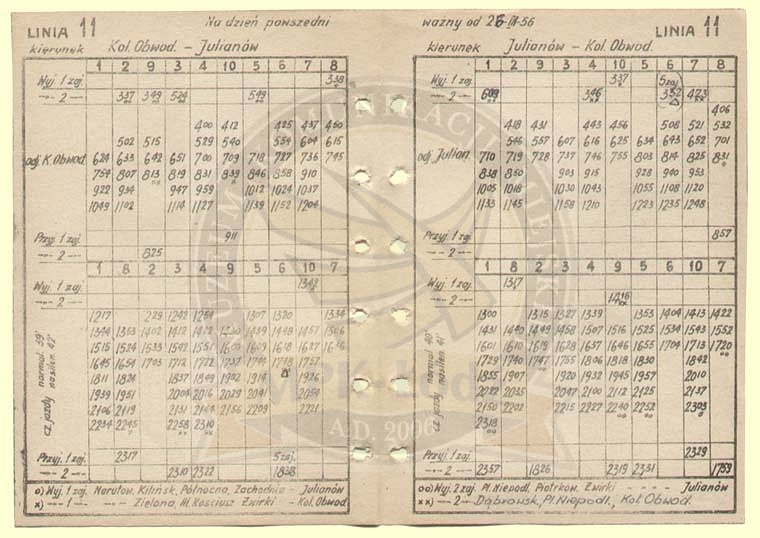 LINIA 11 Na dzień powszedni ważny od 26-IX-56 LINIA 11
kierunek Kol. Obwod. - Julianów
1 2 9 3 4 10 5 6 7 8
Wyj. 1 zaj. 338
-"- 2 -"- 337 349 524 549
400 412 425 437 450
502 515 529 540 554 604 615
odj. K. Obwod. 624 633 642 651 700 709 718 727 736 745
754 807 813 819 831 839 846 858 910
922 934 947 959 1012 1024 1037
1049 1102 1114 1127 1139 1152 1204
Przyj. 1 zaj. 911
-"- 2 -"- 825
1 8 2 9 3 4 5 6 10 7
Wyj. 1 zaj. 1342
1217 1229 1242 1254 1307 1320 1334
1344 1353 1402 1412 1439 1448 1457 1506
1515 1524 1533 1542 1551 1600 1609 1618 1627
1645 1654 1703 1712 1722
1811 1824 1837 1849 1902 1914 1926
1939 1951 2004 2016 2029 2041
2106 2119 2131 2156 2209 2221
2234 2245 2258 2310
Przyj. 1 zaj. 2317 5 zaj.
-"- 2 -"- 2310 2322
cz. jazdy normal. 39' nasilen. 42'
o) Wyj. 1 zaj. Narutow. Kilińsk. Północna, Zachodnia - Julianów
x) -"- 1 -"- Zielona, Żwirki - Kol. Obwod.
kierunek Julianów - Kol. Obwod.
1 2 9 3 4 10 5 6 7 8
Wyj. 1 zaj. 337 5 zaj
-"- 2 -"- 609 346 352 423
406
418 431 443 456 508 521 532
546 557 607 616 625 634 643 652 701
odj. Julian. 710 719 728 737 746 755 803 814 825 831
838 850 903 915 928 940 953
1005 1018 1030 1043 1055 1108 1120
1133 1145 1158 1210 1223 1235 1248
Przyj. 1 zaj. 857
-"- 2 -"-
1 8 2 9 3 4 5 6 10 7
Wyj. 1 zaj. 1317
1416
1300 1315 1327 1339 1353 1404 1413 1422
1431 1440 1449 1458 1507 1516 1525 1534 1543 1552
1601 1610 1619 1628 1637 1646 1655 1704 1713 1720
1729 1740 1747 1755 1806 1818 1830 1842
1855 1907 1920 1932 1945 1957 2010
2022 2035 2047 2100 2112 2125 2137
2150 2202 2215 2227 2240 2252 2303
2318
Przyj. 1 zaj. 2329
-"- 2 -"- 2357 1826 2319 2331 1759
cz. jazdy normal. 40' nasilen. 41'
oo) Wyj. 2 zaj. Pl. Niepodl. Piotrkow. Żwirki - - - - Julianów
xx) -"- 2 -"- Dąbrowsk., Pl. Niepodl., Kol. Obwod.
A.D. 2006